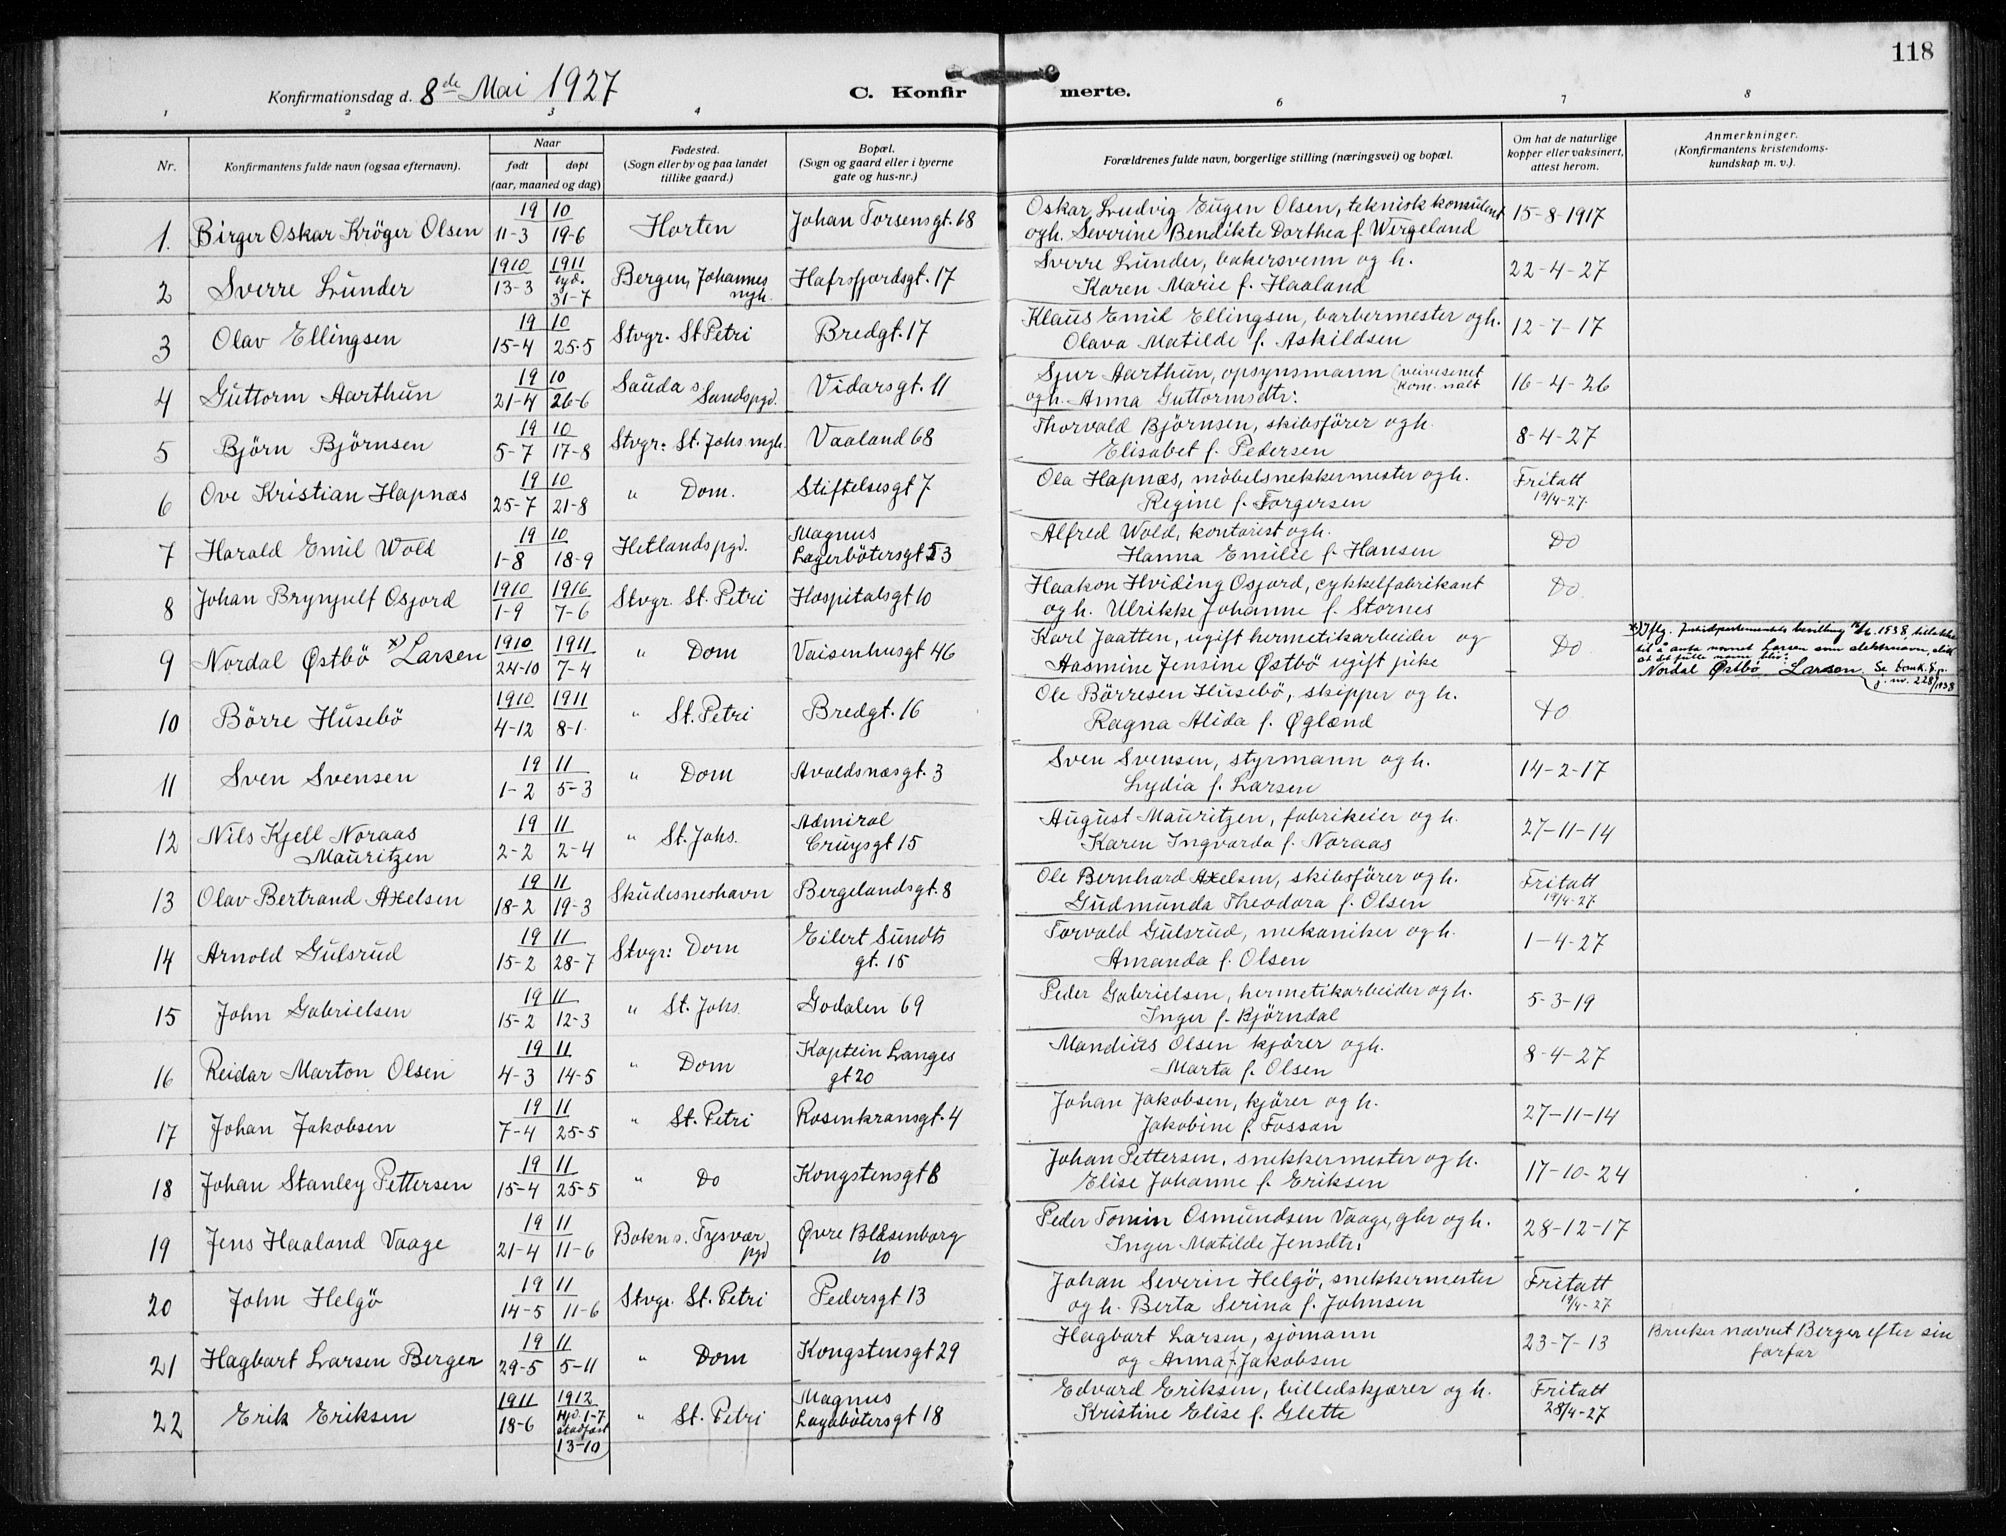 118
Konfirmationsdag d. 8de Mai 1927
C. Konfirmerte.
1 2 3 4 6 7 8
Nr.
Konfirmantens fulde navn (ogsaa efternavn).
Naar
født døpt
(aar, maaned og dag)
Fødested.
(Sogn eller by og paa landet
tillike gaard.)
Bopæl.
(Sogn og gaard eller i byerne
gate og hus-nr.)
Forældrenes fulde navn, borgerlige stilling (næringsvei) og bopæl.
Om hat de naturlige
kopper eller vaksinert,
attest herom.
Anmerkninger.
(Konfirmantens kristendoms-
kundskap m. v.).
1. Birger Oskar Kröger Olsen 19 10 11-3 19-6 Horten Johan Torsensgt. 68
Oskar Ludvig Eugen Olsen, teknisk konsulent
ogh. Severine Bendikte Dorthea f. Wergeland
15-8-1917
2 Sverre Lunder 1910 13-3 1911 31-7 Bergen, Johannes mgh. Hafrsfjordsgt. 17
Sverre Lunder, bakersvenn og h.
Karen Marie f. Haaland
22-4-27
3 Olav Ellingsen 19 10 15-4 25-5 Stvgr. St Petri Bredgt. 17
Klaus Emil Ellingsen, barbermester ogh.
Olava Matilde f. Askildsen
12-7-17
4 Guttorm Aarthun 19 10 21-4 26-6 Sauda s. Sandspgd. Vidarsgt. 11
Sjur Aarthun, opsynsmann
ogh. Anna Guttormsdtr.
16-4-26
5 Björn Björnsen 19 10 5-7 17-8 Stvgr: St. Johs mgh. Vaaland 68
Thorvald Björnsen, skibsförer ogh.
Elisabet f. Pedersen
8-4-27
6 Ove Kristian Hapnæs 19 10 25-7 21-8 " Dom. Stiftelsesgt 7
Ola Hapnæs, möbelsnekkermester og h.
Regine f. Torgersen
Fritatt
19/4-27.
7 Harald Emil Wold 19 10 1-8 18-9 Hetlandspgd. Magnus
Lagerbötersgt 53
Alfred Wold, kontorist ogh.
Hanna Emilie f. Hansen
Do
8 Johan Brynjulf Osjord 1910 1-9 1916 7-6 Stvgr. St. Petri Hospitalsgt 10
Haakon Hviding Osjord, cykkelfabrikant
og h. Ulrikke Johanne f. Stornes
Do.
9 Nordal Østbö x) Larsen 1910 24-10 1911 7-4 " Dom Vaisenhusgt 46
Karl Jaatten, ugift hermetikarbeider og
Aasmine Jensine Østbö ugift pike
Do
x) Iflg. Justisdepartementets bevilling 1938, tillatelse
til å anta navnet Larsen som slektsnavn, slik
at det fulle navn blir:
Nordal Østbö Larsen. Se
j. nr. 228/1938
10 Börre Husebö 1910 4-12 1911 8-1. " St. Petri Bredgt. 16
Ole Börresen Husebö, skipper og h.
Ragna Alida f. Øglænd
Do
11 Sven Svensen 19 11 1-2 5-3 " Dom Avaldsnæsgt. 3
Sven Svensen, styrmann og h.
Lydia f. Larsen
14-2-17
12 Nils Kjell Noraas
Mauritzen 19 11 2-2 2-4 " St. Johs. Admiral
Cruysgt 15
August Mauritzen, fabrikeier og h.
Karen Ingvarda f. Noraas
27-11-14
13 Olav Bertrand Axelsen 19 11 18-2 19-3 Skudesneshavn Bergelandsgt. 8
Ole Bernhard Axelsen, skibsförer og h.
Gudmunda Theodora f. Olsen
Fritatt
19/4-27.
14 Arnold Gulsrud 19 11 15-2 28-7 Stvgr: Dom Eilert Sundts
gt. 15
Torvald Gulsrud, mekaniker og h.
Amanda f. Olsen
1-4-27
15 John Gabrielsen 19 11 15-2 12-3 " St. Johs. Godalen 69
Peder Gabrielsen, hermetikarbeider og h.
Inger f. Björndal
5-3-19
16 Reidar Marton Olsen 19 11 4-3 14-5 " Dom Kaptein Langes
gt 20
Mandius Olsen kjörer ogh.
Marta f. Olsen
8-4-27
17 Johan Jakobsen 19 11 7-4 25-5 " St. Petri Rosenkransgt. 4
Johan Jakobsen, kjörer og h.
Jakobine f. Fossan
27-11-14
18 Johan Stanley Pettersen 19 11 15-4 25-5 " Do Kongstensgt 8
Johan Pettersen, snekkermester og h.
Elise Johanne f. Eriksen
17-10-24
19 Jens Haaland Vaage 19 11 21-4 11-6 Bokn s. Tysvær pgd Øvre Blåsenborg
10
Peder Tomin Osmundsen Vaage, gbr og h.
Inger Matilde Jensdtr.
28-12-17
20 John Helgö 19 11 14-5 11-6 Stvgr. St. Petri Pedersgt 13
Johan Severin Helgö, snekkermester
og h. Berta Serina f. Johnsen
Fritatt
19/4-27
21 Hagbart Larsen Berger 19 11 29-5 5-11 " Dom Kongstensgt 29
Hagbart Larsen, sjömann
og Anna f. Jakobsen
23-7-13
Bruker navnet Berger efter sin
farfar
22 Erik Eriksen 1911 18-6 1912 Hjd. 1-7 stadfest 13-10 " St. Petri Magnus
Lagabötersgt 18
Edvard Eriksen, billedskjærer og h.
Kristine Elise f. Glette
Fritatt
28/4-27